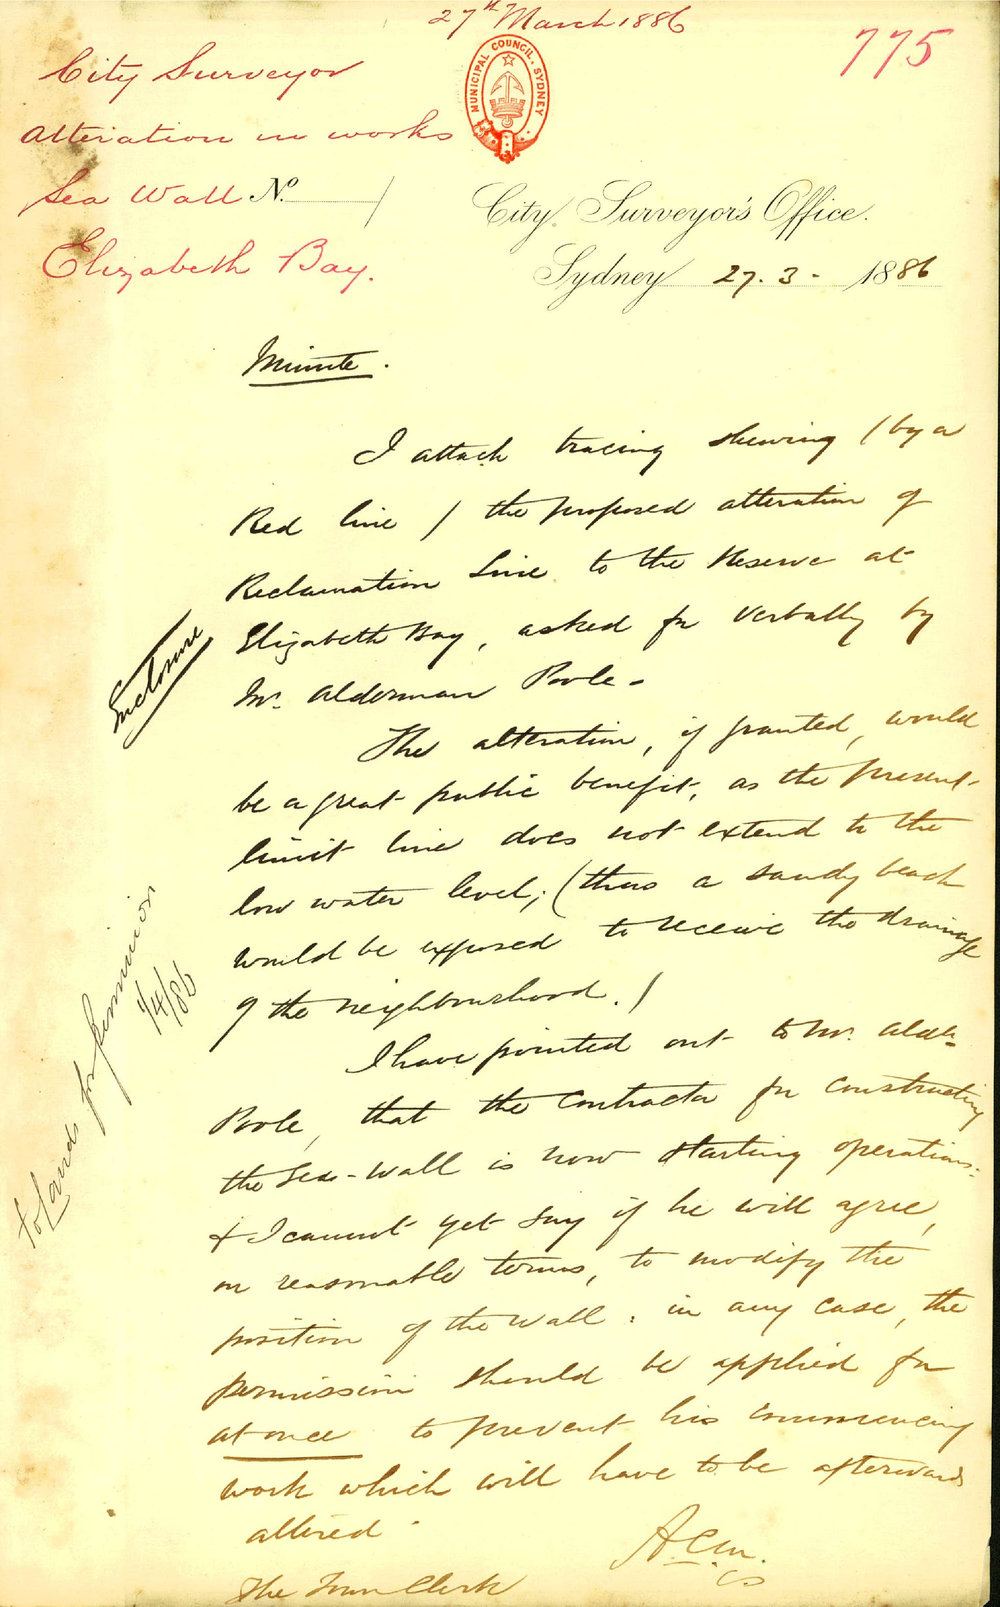 27th March 1886
775
City Surveyor
Alteration in works
Sea Wall No. /
Elizabeth Bay.
MUNICIPAL COUNCIL. SYDNEY
City Surveyor's Office.
Sydney 27.3- 1886
Minute.
I attach tracing shewing / by a
Red line / the proposed alteration of
Reclamation Line to the Reserve at
Elizabeth Bay, asked for verbally by
Mr. Alderman Poole -
Enclosure
The alteration, if granted, would
be a great public benefit, as the present
limit line does not extend to the
low water level; (thus a sandy beach
would be exposed to receive the drainage
of the neighbourhood. )
To Lands for permission
1/4/86
I have pointed out to Mr. Ald:
Poole, that the Contractor for constructing
the Sea-wall is now starting operations:
& I cannot yet say if he will agree,
on reasonable terms, to modify the
position of the wall: in any case, the
permission should be applied for
at once to prevent his commencing
work which will have to be afterwards
altered.
A.C.M.
CS
The Town Clerk